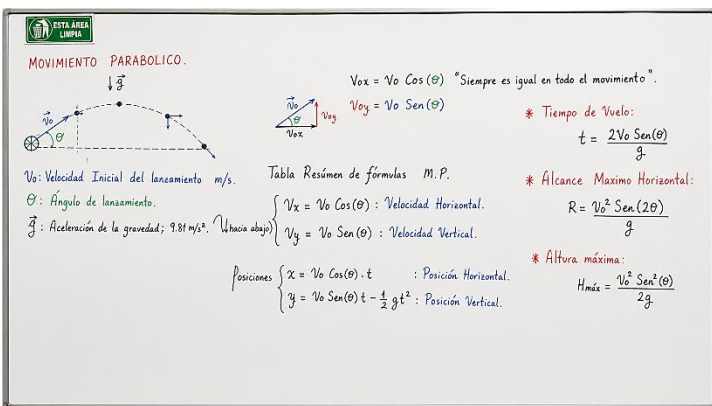 ESTA ÁREA
LIMPIA
MOVIMIENTO PARABOLICO.
g
Vo
θ
Vo: Velocidad Inicial del lanzamiento m/s.
θ: Ángulo de lanzamiento.
g: Aceleración de la gravedad; 9.81 m/s². (hacia abajo)
Vo
θ
Voy
Vox
Vox = Vo Cos (θ) "Siempre es igual en todo el movimiento".
Voy = Vo Sen (θ)
Tabla Resúmen de fórmulas M.P.
Vx = Vo Cos(θ) : Velocidad Horizontal.
Vy = Vo Sen(θ) : Velocidad Vertical.
Posiciones
x = Vo Cos(θ) . t : Posición Horizontal.
y = Vo Sen(θ) t - 1/2 gt² : Posición Vertical.
* Tiempo de Vuelo:
t = 2Vo Sen(θ) / g
* Alcance Maximo Horizontal:
R = Vo² Sen(2θ) / g
* Altura máxima:
Hmáx = Vo² Sen²(θ) / 2g